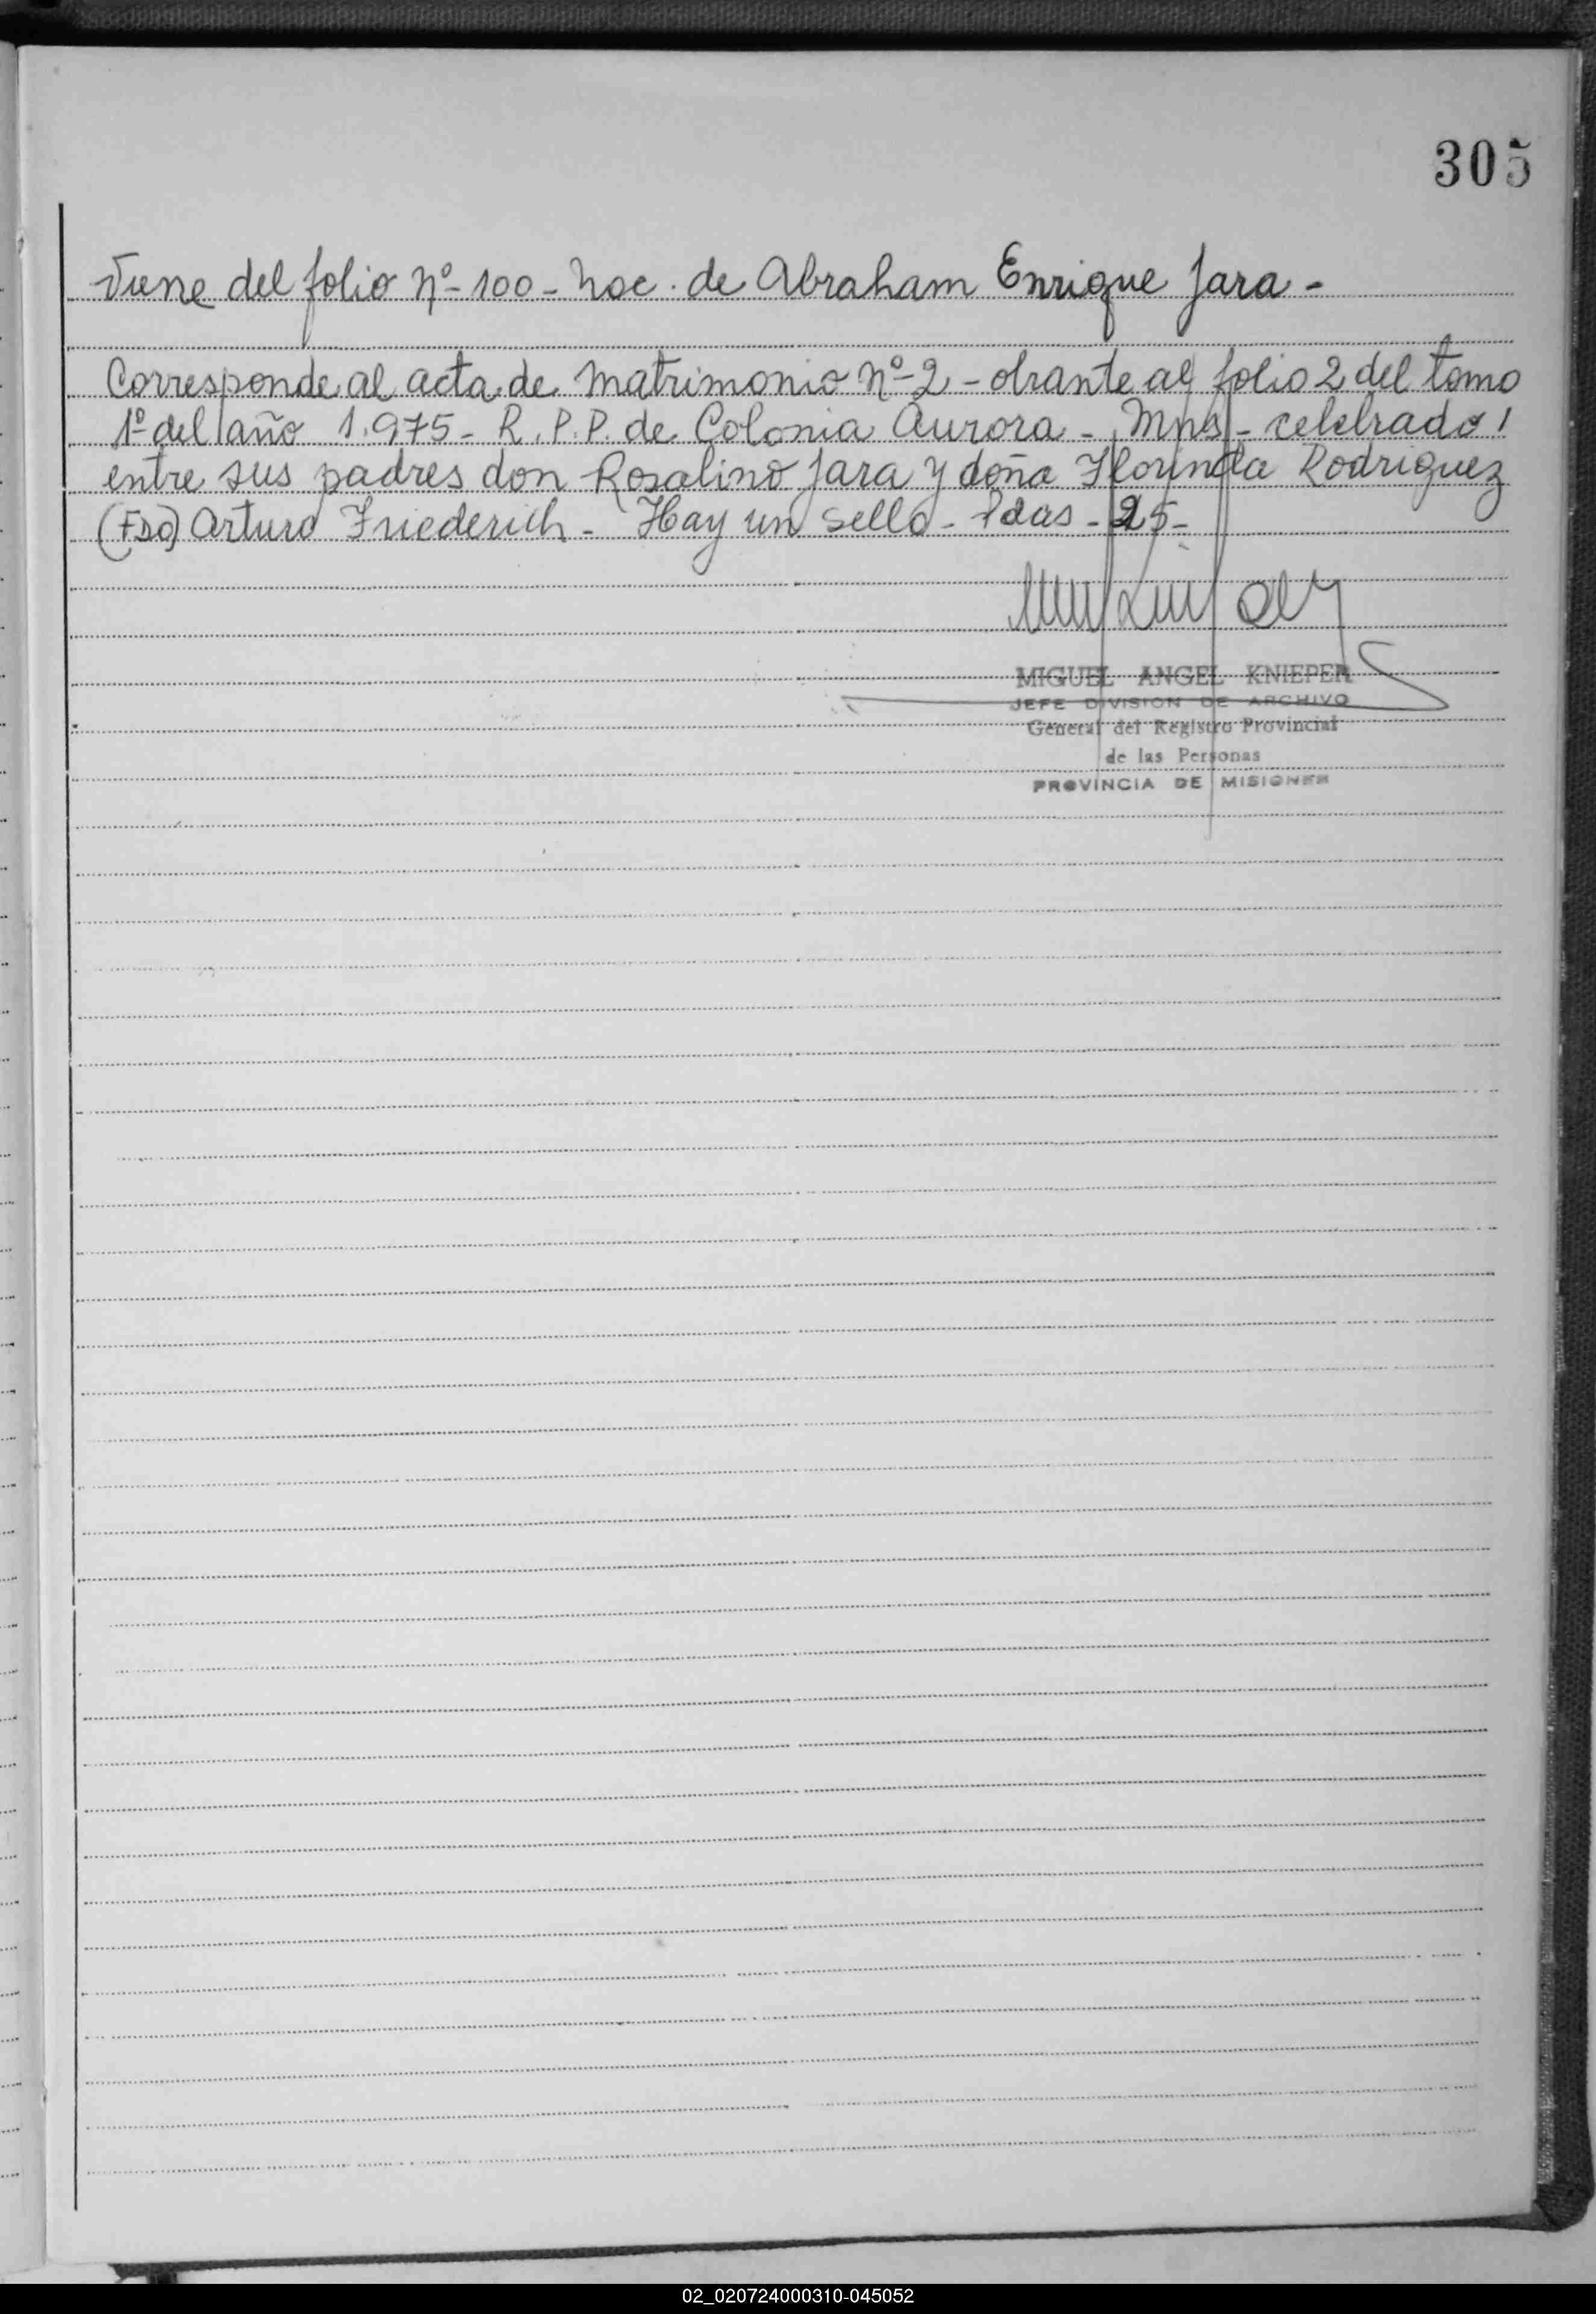 305
Viene del folio Nº-100- Nac. de Abraham Enrique Jara -
Corresponde al acta de Matrimonio Nº-2- obrante al folio 2 del tomo
1º del año 1.975- R.P.P. de Colonia Aurora - Mnes - celebrado
entre sus padres don Rosalino Jara y doña Florinda Rodriguez
(FDO) Arturo Friederich - Hay un sello - Pdas - 25-
MIGUEL ANGEL KNIEPER
JEFE DIVISION DE ARCHIVO
General del Registro Provincial
de las Personas
PROVINCIA DE MISIONES
02_020724000310-045052